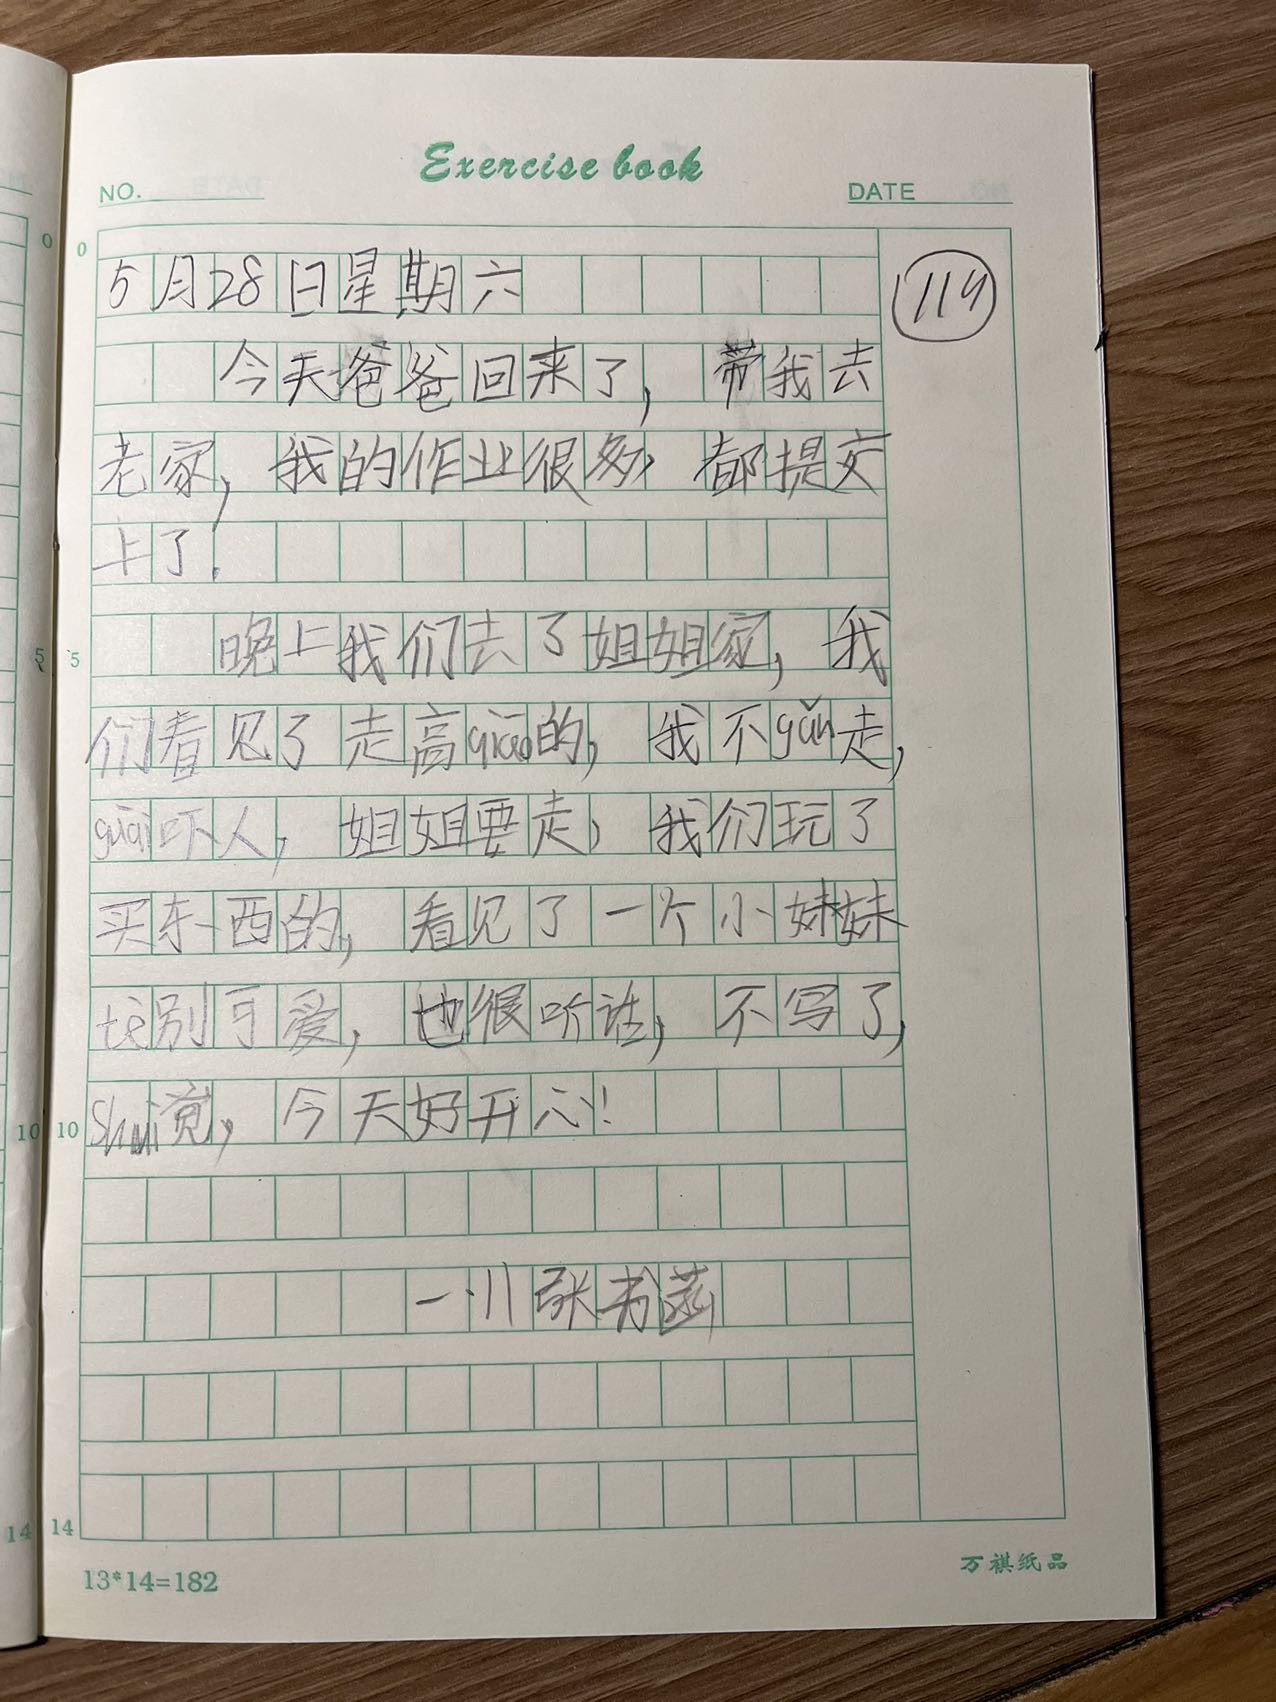 Exercise book
NO.
DATE
5月28日星期六
114
今天爸爸回来了，带我去
老家，我的作业很多，都提交
上了.
晚上我们去了姐姐家，我
们看见了走高qiāo的，我不gǎn走，
guài吓人，姐姐要走，我们玩了
买东西的，看见了一个小妹妹
tè别可爱，也很听话，不写了，
Shuì觉，今天好开心！
一.11张书菡
0
5
10
14
0
5
10
14
13*14=182
万祺纸品